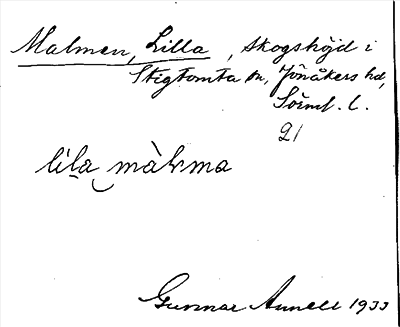 Malmen, Lilla, skogshöjd i
Stigtomta sn, Jönåkers hd,
Sörml. l.
21
lìla màlma
Gunnar Annell 1933